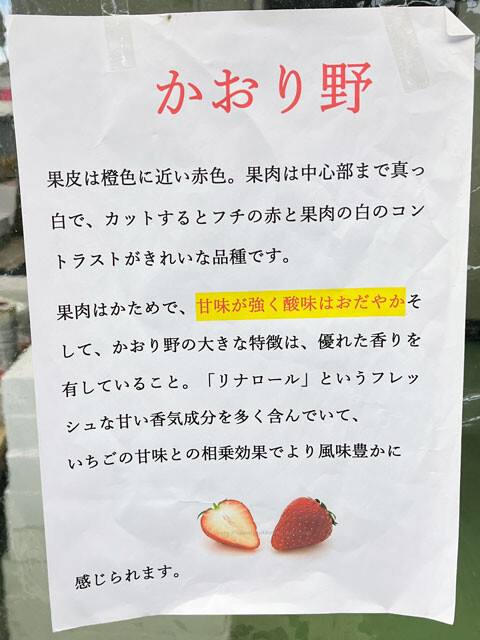 かおり野
果皮は橙色に近い赤色。果肉は中心部まで真っ
白で、カットするとフチの赤と果肉の白のコン
トラストがきれいな品種です。
果肉はかためで、甘味が強く酸味はおだやかそ
して、かおり野の大きな特徴は、優れた香りを
有していること。「リナロール」というフレッ
シュな甘い香気成分を多く含んでいて、
いちごの甘味との相乗効果でより風味豊かに
感じられます。